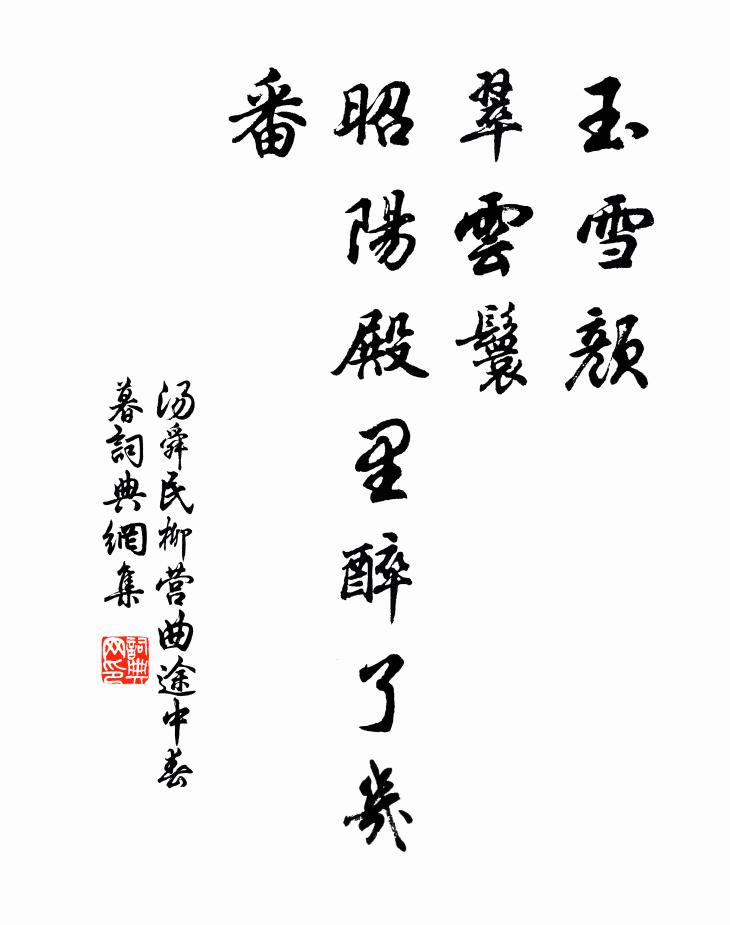 玉雪顏
翠雲鬟
昭陽殿里醉了幾
番
汤舜民柳营曲途中春
暮詞典網集
詞典
网印